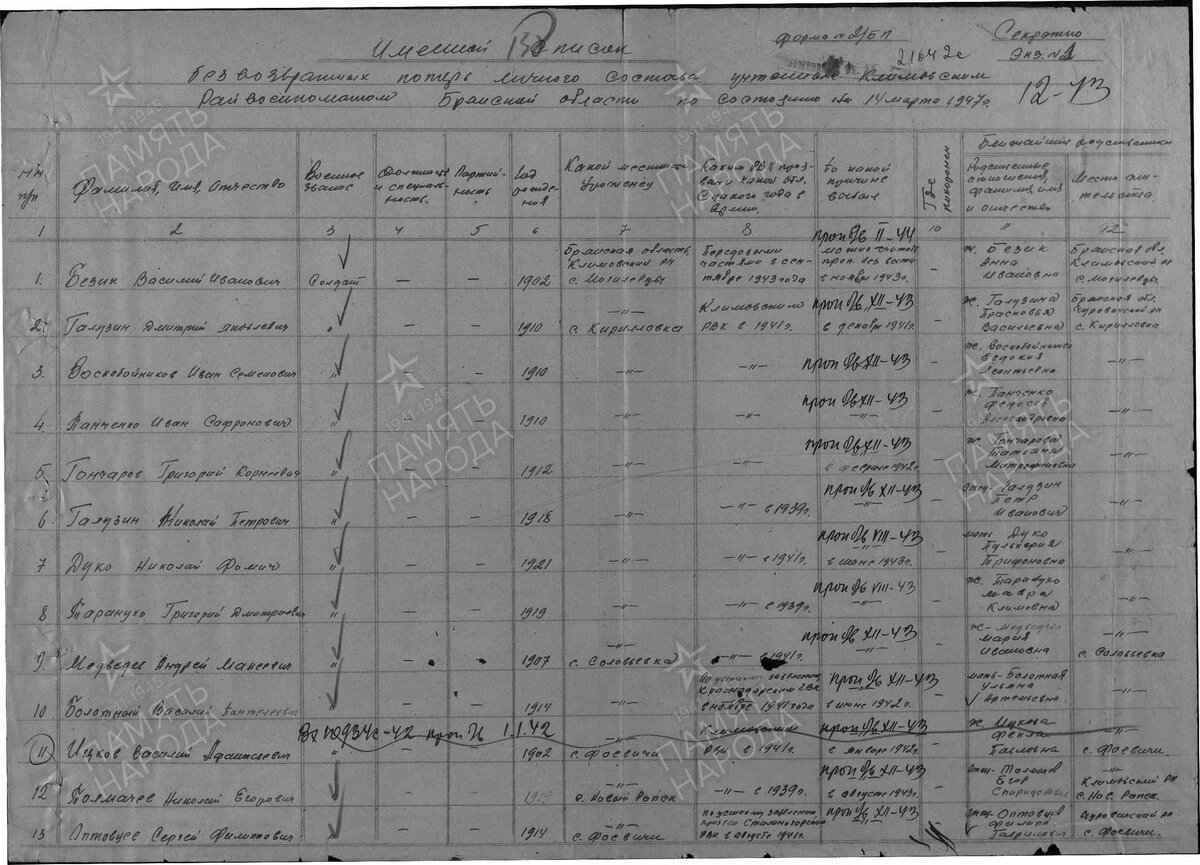 Именной список
Форма №2/БП
Секретно
Экз. №1
21042с
безвозвратных потерь личного состава учтенных Климовским
Райвоенкоматом Брянской области по состоянию на 14 марта 1947г.
12-43
№№ п/п
Фамилия, Имя, Отчество
Военное звание
Должность и специальность.
Партийность.
Год рождения
Какой местности уроженец
Каким РВК призван
По какой причине выбыл
Где похоронен
Ближайшие родственники
Родственные отношения, фамилия, имя и отчество
Место жительства.
1 2 3 4 5 6 7 8 10 " 12
проп б/в II-44
1. Безик Василий Иванович Солдат — — 1902 Брянская область, Климовский рн с. Могилевцы Передовыми частями в сентябре 1943 года можно считать проп. без вести в ноябре 1943г. — ж. Безик Анна Ивановна Брянская обл. Климовский рн с. Могилевцы.
2. Галузин Дмитрий Яковлевич " — — 1910 —"— с. Кирилловка Климовским РВК в 1941г. проп б/в XII-43 в декабре 1941г. — ж. Галузина Прасковья Васильевна Брянская обл. рн с. Кирилловка
3. Воскобойников Иван Семенович " — — 1910 —"— —"— проп б/в XII-43 — ж. Воскобойникова Евдокия Леонтьевна —"—
4. Панченко Иван Сафронович " — — 1910 —"— —"— проп б/в XII-43 — ж. Панченко Федосья Александровна —"—
5. Гончаров Григорий Корнеевич " — — 1912 —"— —"— проп б/в XII-43 в феврале 1942г. — ж. Гончарова Татьяна Митрофановна —"—
6 Галузин Николай Петрович " — — 1918 —"— —"— в 1939г. проп б/в XII-43 —"— — отец- Галузин Петр Иванович —"—
7 Дуко Николай Фомич " — — 1921 —"— —"— в 1941г. проп б/в VIII-43 в июне 1943г. — мать Дуко Пульхерия Трифоновна —"—
8 Таранухо Григорий Дмитриевич " — — 1919 —"— —"— в 1939г. проп б/в VIII-43 —"— — ж. Таранухо Мавра Климовна —"—
9. Медведев Андрей Моисеевич " — — 1907 —"— с. Соловьевка —"— в 1941г. проп б/в XII-43 —"— — ж- Медведев Мария Ивановна —"— с. Соловьевка
10 Болотный Василий Пантелеевич " — — 1914 —"— По устному заявлению Краснодарским РВК в ноябре 1941 года проп б/в XII-43 в июне 1942г. — мать- Болотная Ульяна Артемьевна —"—
Вх 10934с-42 проп б/в 1.1.42
11 Ицков Василий " — — 1902 —"— с. Фоевичи Климовским РВК в 1941г. проп б/в XII-43 в январе 1942г. — ж. Ицкова Фекла Павловна —"— с. Фоевичи.
12 Толмачев Николай Егорович " — — 1919 —"— с. Новый Ропск —"— в 1939г. проп б/в XII-43 в августе 1943г. — отец- Толмачев Егор Спиридонович Климовский рн с. Нов. Ропск.
13 Оптовцев Сергей Филиппович " — — 1914 —"— с. Фоевичи По устному заявлению призван Сталиногорским РВК в августе 1941г. проп б/в XII-43 —"— — отец- Оптовцев Филипп Гаврилович рн с. Фоевичи.
ПАМЯТЬ НАРОДА
1941-1945
ПАМЯТЬ НАРОДА
1941-1945
ПАМЯТЬ НАРОДА
1941-1945
ПАМЯТЬ НАРОДА
1941-1945
ПАМЯТЬ НАРОДА
1941-1945
ПАМЯТЬ НАРОДА